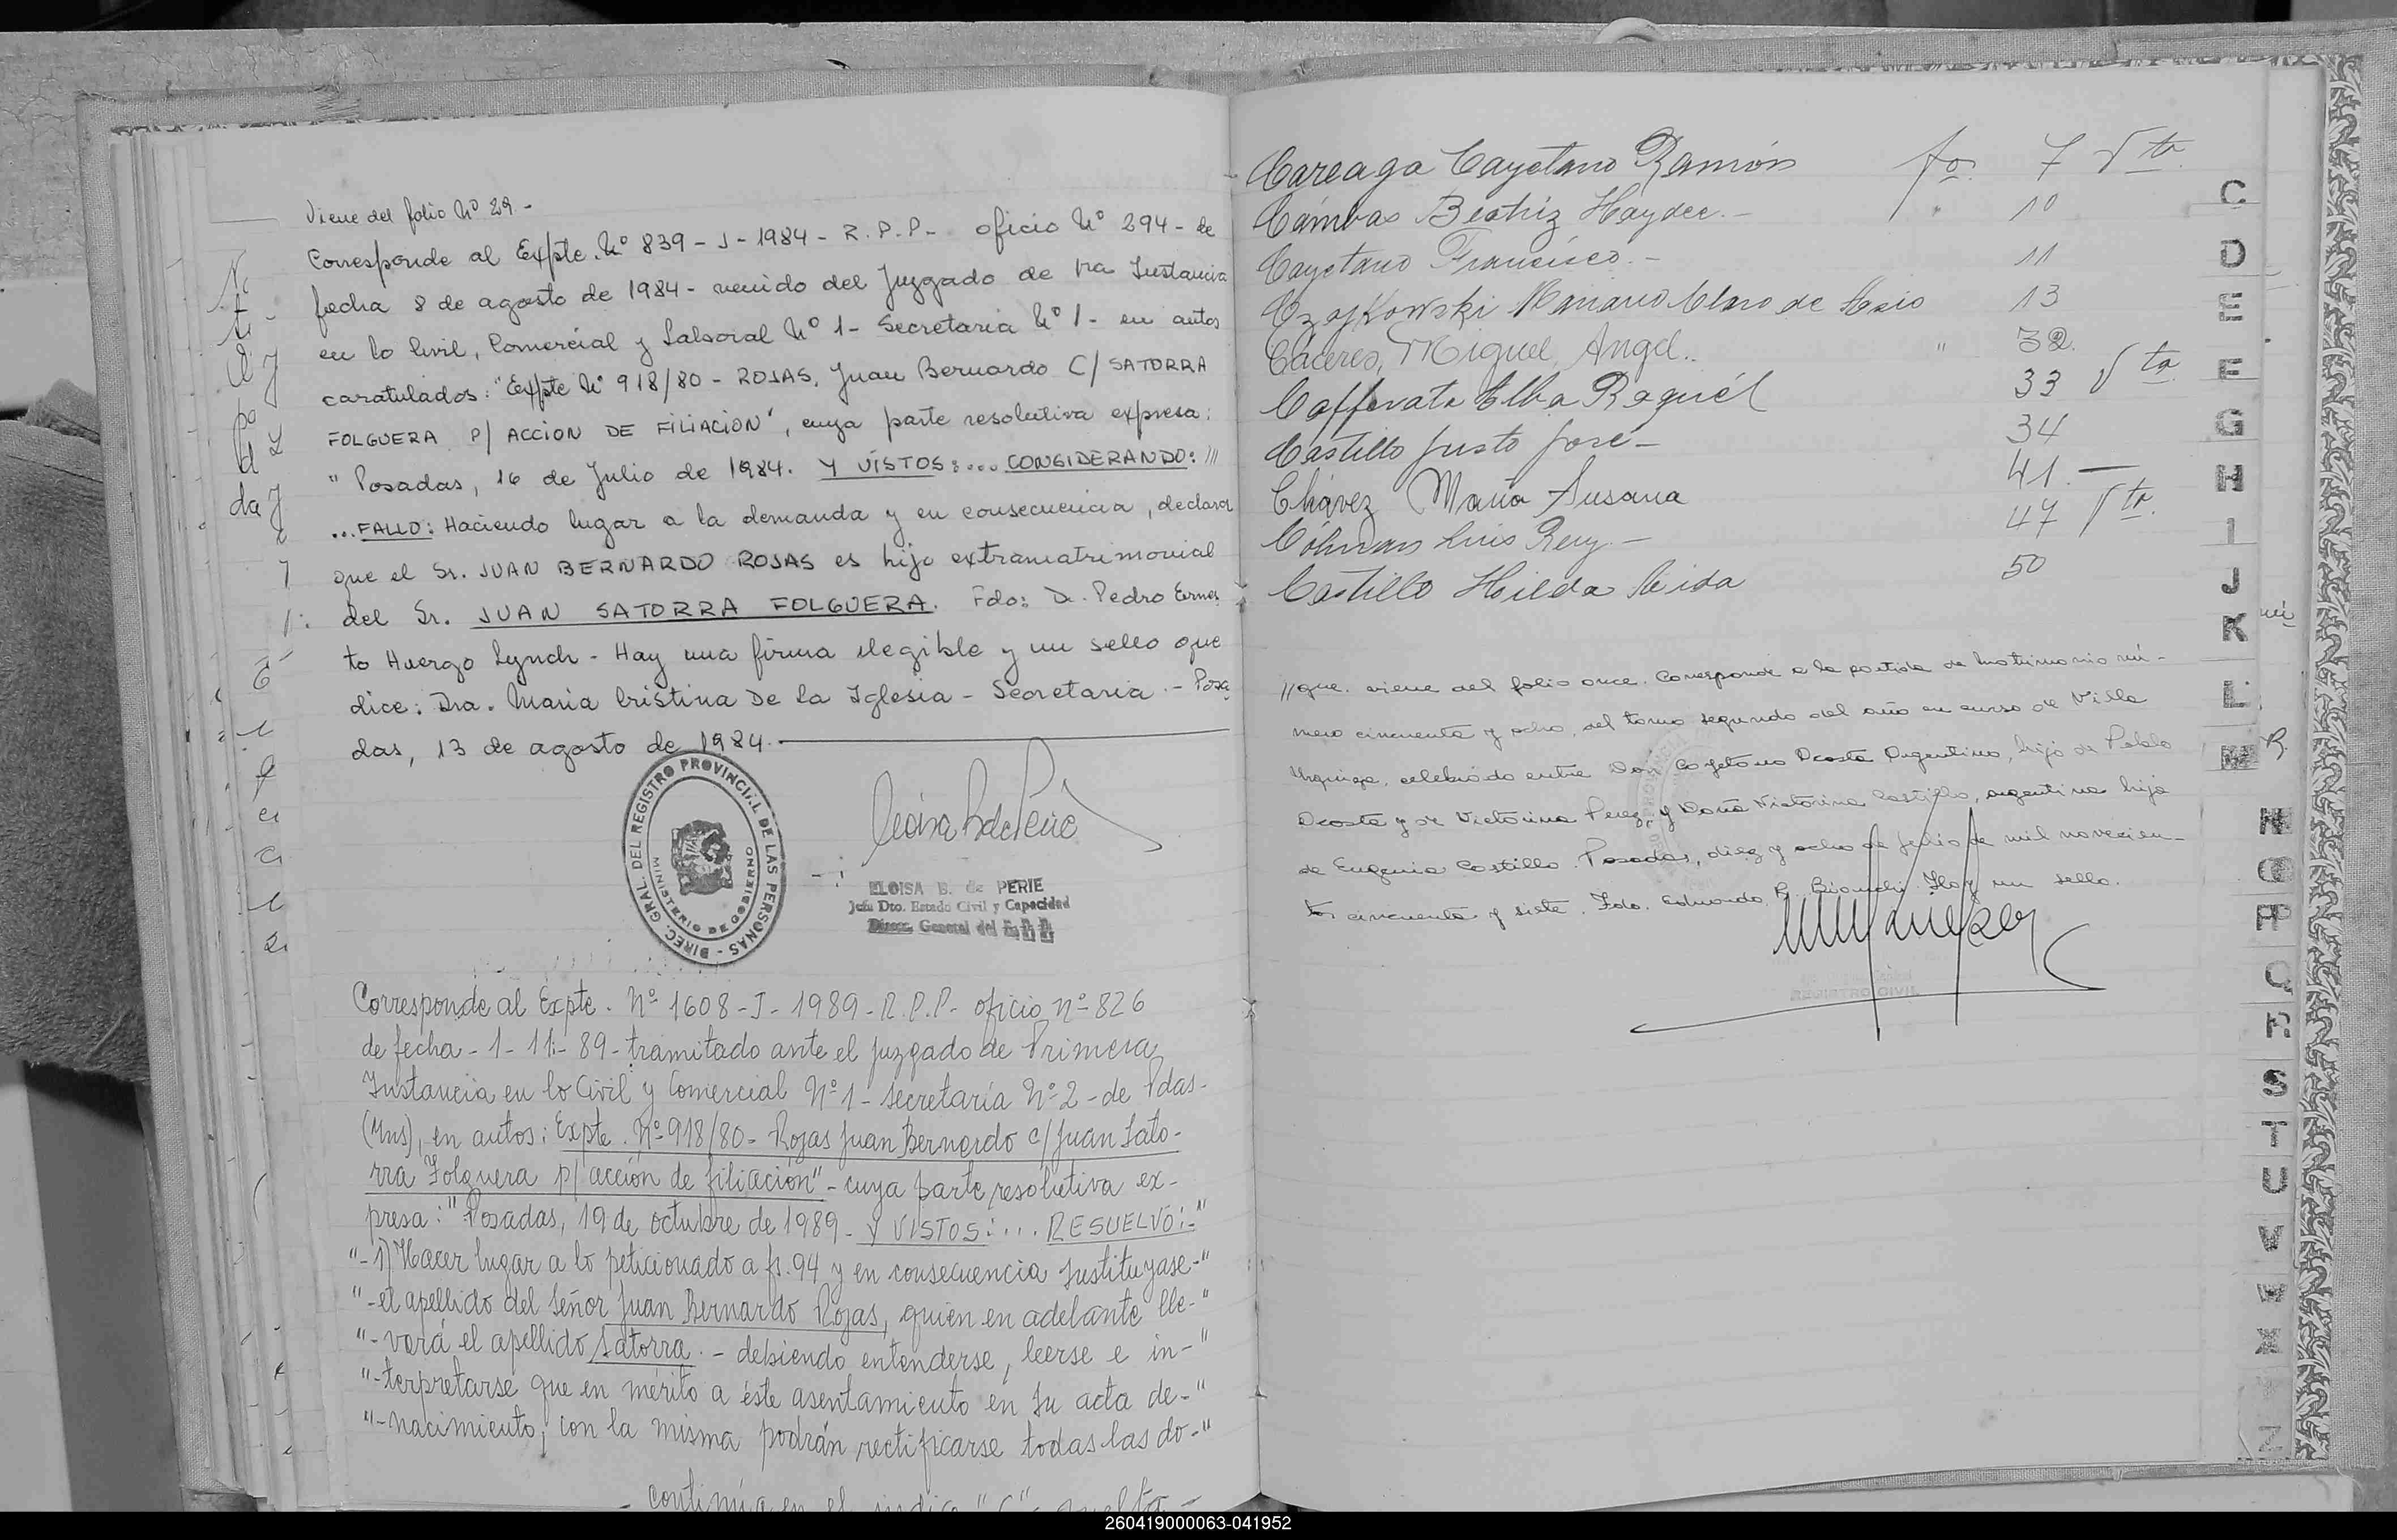 Viene del folio Nº 29.-
Corresponde al Expte. Nº 839-J-1984-R.P.P.- oficio Nº 294- de
fecha 8 de agosto de 1984- venido del Juzgado de 1ra Instancia
en lo Civil, Comercial y Laboral Nº 1- Secretaria Nº 1- en autos
caratulados: "Expte Nº 918/80- ROJAS, Juan Bernardo C/ SATORRA
FOLGUERA P/ ACCION DE FILIACION", cuya parte resolutiva expresa:
" Posadas, 16 de Julio de 1984. Y VISTOS:... CONSIDERANDO: ///
...FALLO: Haciendo lugar a la demanda y en consecuencia, declarar
que el Sr. JUAN BERNARDO ROJAS es hijo extramatrimonial
del Sr. JUAN SATORRA FOLGUERA. Fdo: Dr. Pedro Ernes
to Huergo Lynch- Hay una firma ilegible y un sello que
dice: Dra. Maria Cristina De la Iglesia- Secretaria.- Posa
das, 13 de agosto de 1984.-
DIREC. GRAL. DEL REGISTRO PROVINCIAL DE LAS PERSONAS -
MINISTERIO DE GOBIERNO
ELOISA B. de PERIE
Jefa Dto. Estado Civil y Capacidad
Direcc. General del
Corresponde al Expte. Nº 1608-J-1989-R.P.P.- oficio nº 826
de fecha-1-11-89-tramitado ante el juzgado de Primera
Instancia en lo Civil y Comercial Nº 1- secretaría Nº 2-de Pdas-
(Mns), en autos: Expte. Nº 918/80- Rojas Juan Bernardo c/ Juan Sato-
rra Folguera p/ acción de filiación"- cuya parte resolutiva ex-
presa: "Posadas, 19 de octubre de 1989- Y VISTOS:... RESUELVO:-"
"-1) Hacer lugar a lo peticionado a fs. 94 y en consecuencia sustituyase-"
"-el apellido del señor Juan Bernardo Rojas, quien en adelante lle-"
"-vará el apellido Satorra.- debiendo entenderse, leerse e in-"
"-terpretarse que en mérito a éste asentamiento en su acta de-"
"-nacimiento, con la misma podrán rectificarse todas las do-"
- continúa en el indice "C"- vuelta-
Careaga Cayetano Ramón fo. 7 Vto.
Cámbas Beatriz Haydee.- " 10
Cayetano Francisco.- 11
Czajkowski Mariano Claro de 13
Cáceres, Miguel Angel.. " 32.
Cafferata Elba Raquél 33 Vto
Castillo Justo José- 34
Chávez María Susana 41.-
Cólman Luis Rey.- 47 Vto.
Castillo Hilda 50
//que viene del folio once. Corresponde a la partida de matrimonio nú-
mero cincuenta y ocho, del tomo segundo del año en curso de Villa
Urquiza, celebrado entre Don Cayetano Acosta Argentino, hijo de Pablo
Acosta y de Victorina Perez, y Doña Victorina Castillo, argentina hija
de Eugenia Castillo. Posadas, diez y ocho de julio de mil novecien-
tos cincuenta y siete. Fdo. Eduardo R. Bianchi. Hay un sello.
REGISTRO CIVIL
C
D
E
F
G
H
I
J
K
L
M
N
O
P
Q
R
S
T
U
V
W
X
Z
260419000063-041952